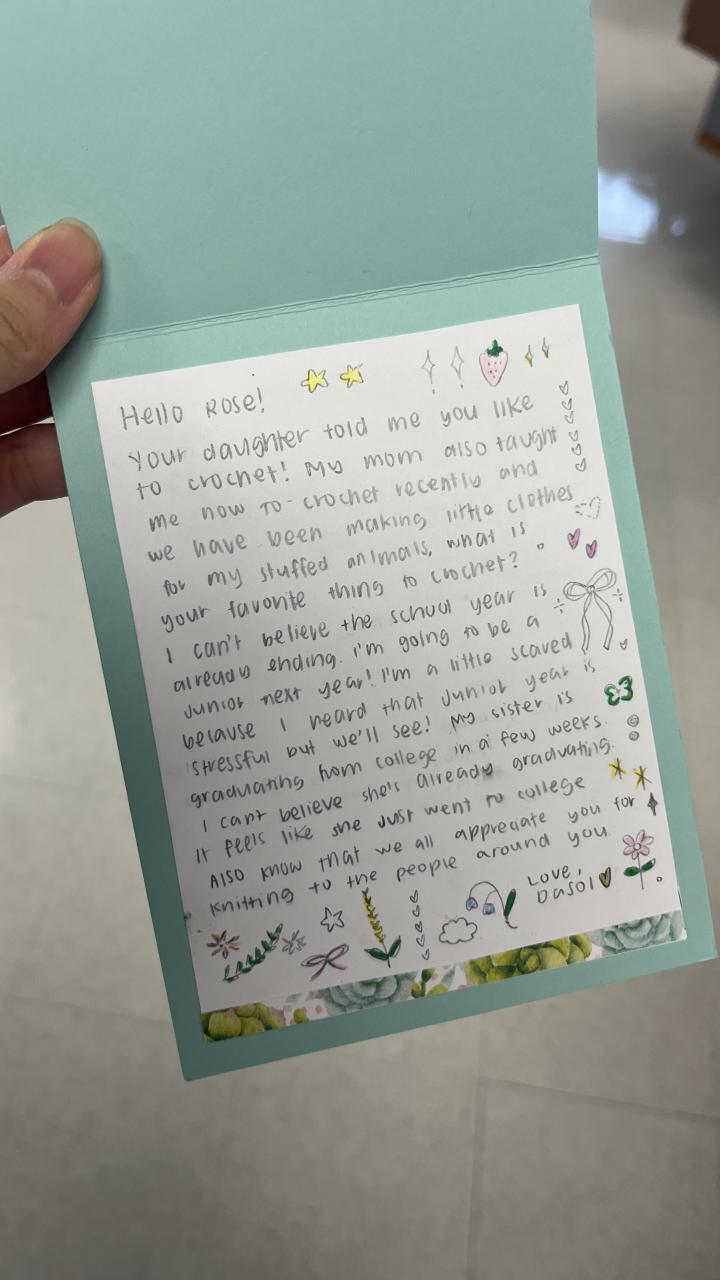 Hello Rose!
Your daughter told me you like
to crochet! My mom also taught
me how to crochet recently and
we have been making little clothes
for my stuffed animals, what is
your favorite thing to crochet?
I can't believe the school year is
already ending. I'm going to be a
Junior next year! I'm a little scared
because I heard that Junior year is
stressful but we'll see! My sister is
graduating from college in a few weeks.
I can't believe she's already graduating.
It feels like she just went to college
Also know that we all appreciate you for
knitting to the people around you.
Love,
Dasol